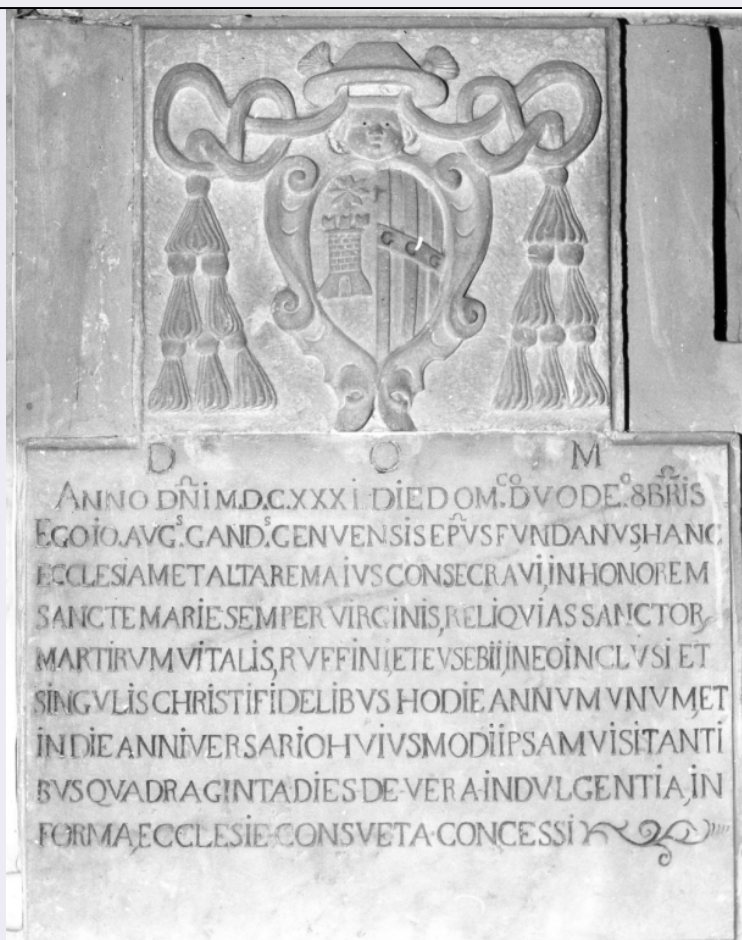 D O M
ANNO DÑI M.D.C.XXXI DIE DOM.CO DVODE.O 8BR̃IS
EGO IO. AVG.S GAND.S GENVENSIS EP̃VS FVNDANVS HANC
ECCLESIAM ET ALTARE MAIVS CONSECRAVI, IN HONOREM
SANCTE MARIE SEMPER VIRGINIS, RELIQVIAS SANCTOR
MARTIRVM VITALIS, RVFFINI, ET EVSEBII, IN EO INCLVSI ET
SINGVLIS CHRISTIFIDELIBVS HODIE ANNVM VNVM, ET
IN DIE ANNIVERSARIO HVIVSMODI IPSAM VISITANTI
BVS QVADRAGINTA DIES DE VERA INDVLGENTIA, IN
FORMA, ECCLESIE CONSVETA CONCESSI